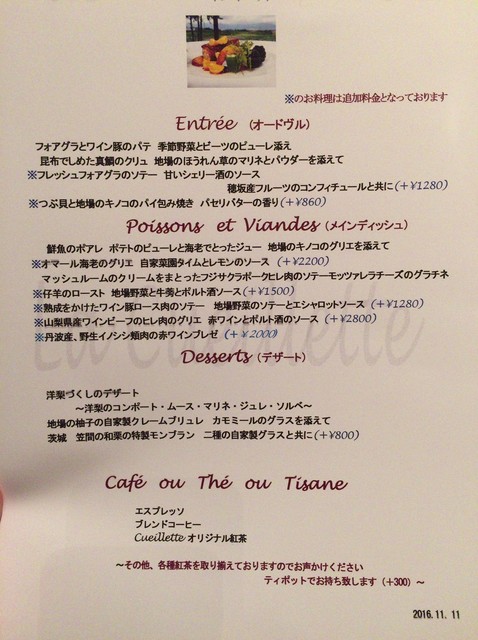 ※のお料理は追加料金となっております
Entrée (オードヴル)
フォアグラとワイン豚のパテ 季節野菜とビーツのピューレ添え
昆布でしめた真鯛のクリュ 地場のほうれん草のマリネとパウダーを添えて
※フレッシュフォアグラのソテー 甘いシェリー酒のソース
穂坂産フルーツのコンフィチュールと共に(+¥1280)
※つぶ貝と地場のキノコのパイ包み焼き パセリバターの香り(+¥860)
Poissons et Viandes (メインディッシュ)
鮮魚のポアレ ポテトのピューレと海老でとったジュー 地場のキノコのグリエを添えて
※オマール海老のグリエ 自家菜園タイムとレモンのソース (+¥2200)
マッシュルームのクリームをまとったフジサクラポークヒレ肉のソテーモッツァレラチーズのグラチネ
※仔羊のロースト 地場野菜と牛蒡とポルト酒ソース(+¥1500)
※熟成をかけたワイン豚ロース肉のソテー 地場野菜のソテーとエシャロットソース (+¥1280)
※山梨県産ワインビーフのヒレ肉のグリエ 赤ワインとポルト酒のソース (+¥2800)
※丹波産、野生イノシシ頬肉の赤ワインブレゼ (+¥2000)
Desserts (デザート)
洋梨づくしのデザート
～洋梨のコンポート・ムース・マリネ・ジュレ・ソルベ～
地場の柚子の自家製クレームブリュレ カモミールのグラスを添えて
茨城 笠間の和栗の特製モンブラン 二種の自家製グラスと共に(+¥800)
Café ou Thé ou Tisane
エスプレッソ
ブレンドコーヒー
Cueillette オリジナル紅茶
～その他、各種紅茶を取り揃えておりますのでお声かけください
ティポットでお持ち致します（+300）～
2016.11.11